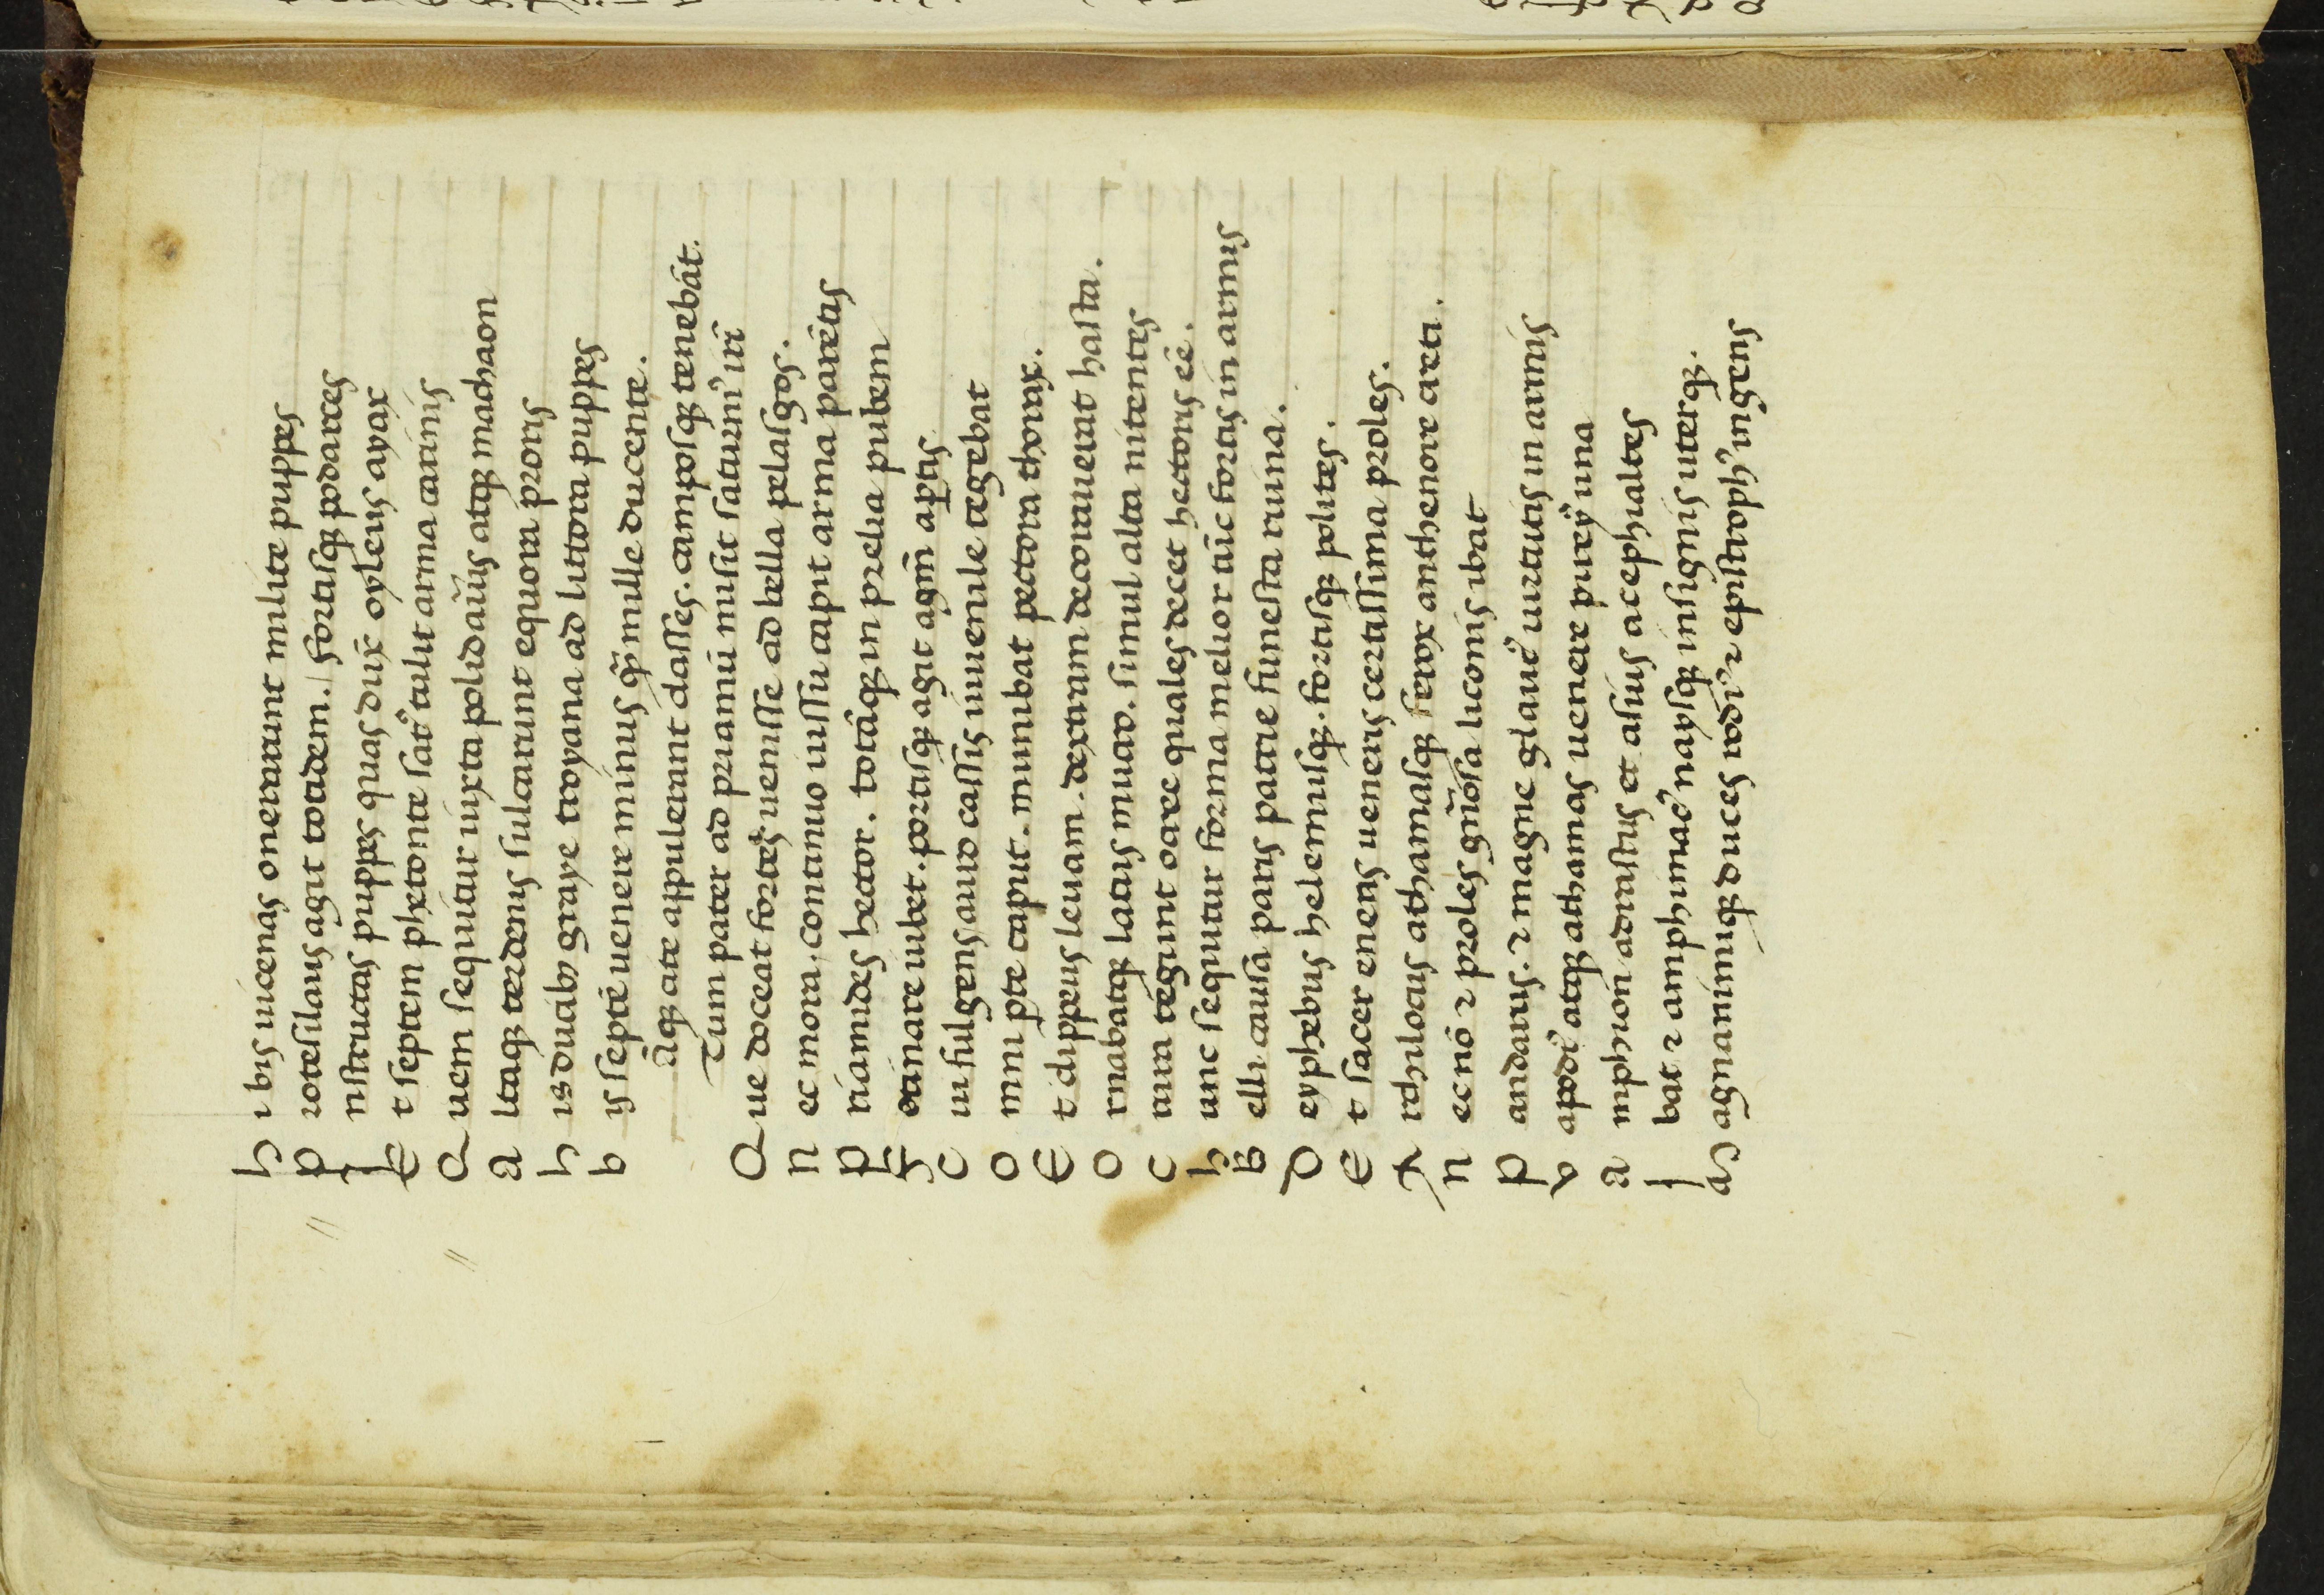 hi bis uicenas onerarunt milite puppes
protesilaus agit totidem. fortisqꝫ podarces
Instructas puppes quas dux̄ oyleus ayax
Et septem phetonte satꝰ tulit arma carinis
Quem sequitur iuxta polidauis atqꝫ machaon
altaqꝫ terdenis sulcarunt equora proris
his ducibꝫ graye troyana ad littora puppes
bis septē uenere minus qͣ mille ducente.
Iāqꝫ ate appulerant classes. camposqꝫ tenebāt.
Tum pater ad priamū misit saturniꝰ irī
Que doceat fortes uenisse ad bella pelasgos.
nec mora, continuo iussu capit arma parētis
priamides hector. totāqꝫ in prelia pubem
extimare iubet. portisqꝫ agit agm̄ aptis
cui fulgens auro cassis iuuenile tegebat
omni pte caput. munibat pectora thorax.
Et clippeus leuam. dextram decorauerat hasta.
ornabatqꝫ latus muao. simul alta nitentes
crura tegunt ocree quales decet hectoris eē.
hunc sequitur forma melior tūc fortis in armis
Belli causa paris patrie funesta ruina.
Deyphebus helemisqꝫ. fortisqꝫ polites.
Et sacer eneas ueneris certissima proles.
Archilocus athamasqꝫ ferox anthenore creti.
nec nō ⁊ proles gn̄osa liconis ibat
pandarus. ⁊ magne glaucꝰ uirtutis in armis
vapodiꝰ atqꝫ athamas uenere pireyꝰ una
amphion adrastus et asius acephialtes
Ibat ⁊ amphimacꝰ naysqꝫ insignis uterqꝫ.
Magnanimiqꝫ duces rodiꝰ ⁊ epistrophꝰ ingens